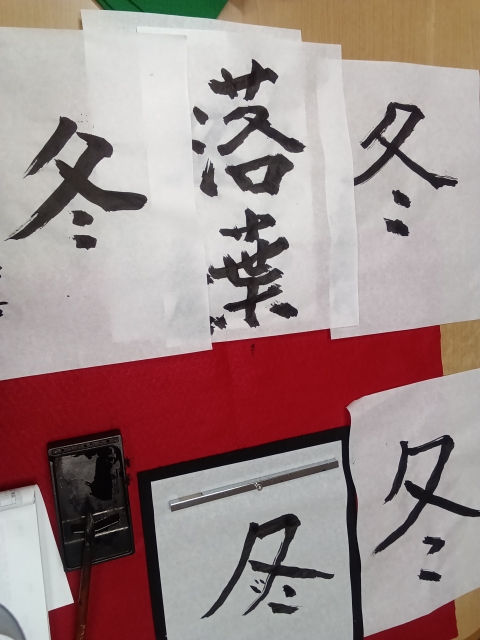 冬
落葉
冬
冬
冬